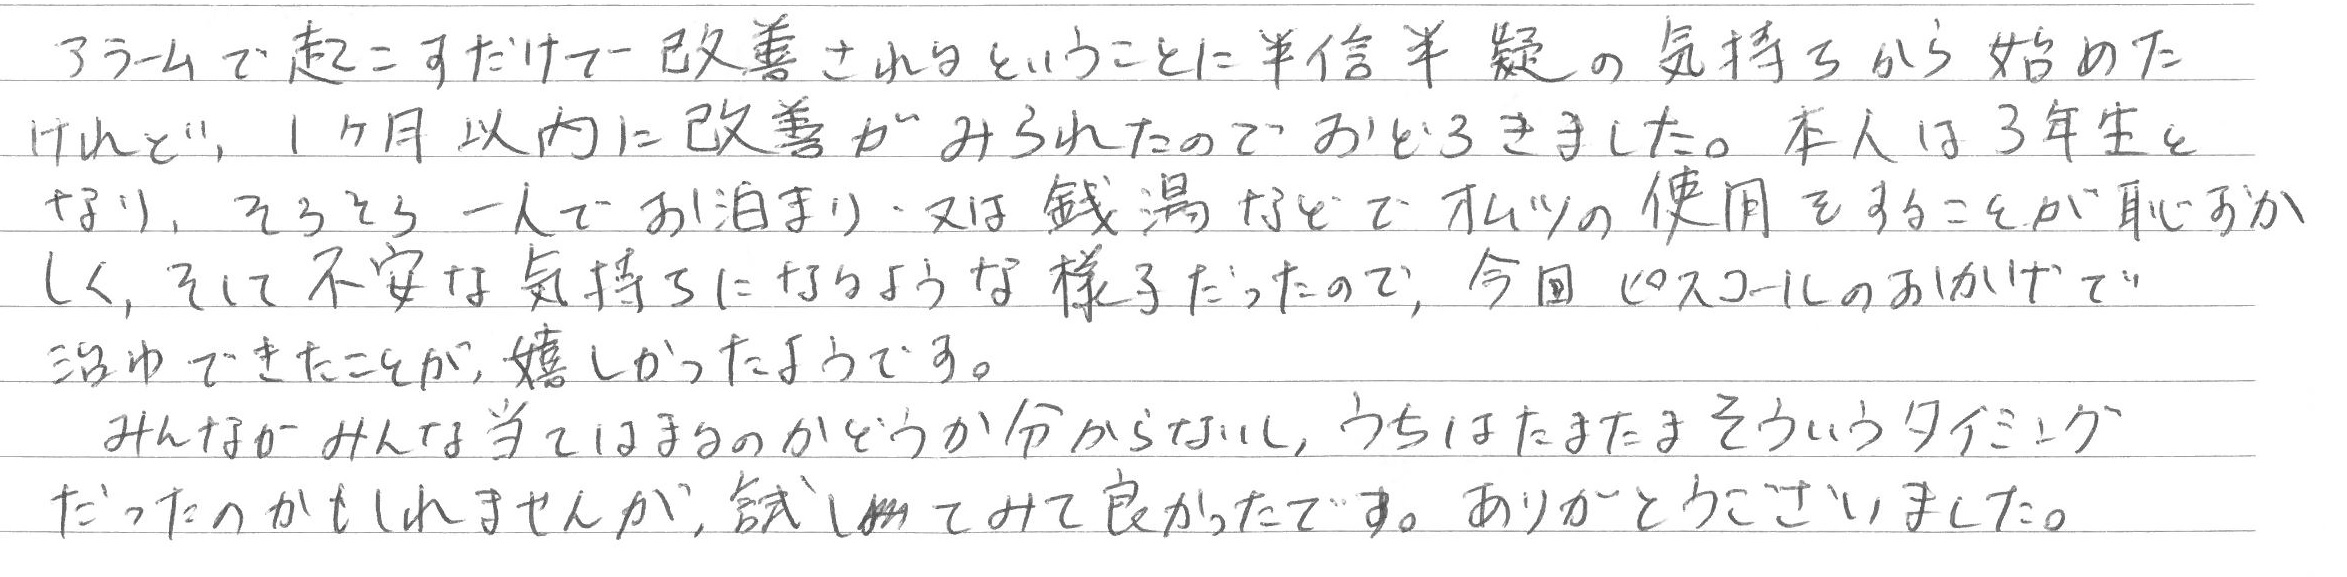 アラームで起こすだけで改善されるということに半信半疑の気持ちから始めた
けれど、1ヶ月以内に改善がみられたのでおどろきました。本人は3年生と
なり、そろそろ一人でお泊まり・又は銭湯などでオムツの使用をすることが恥ずか
しく、そして不安な気持ちになるような様子だったので、今回ピスコールのおかげで
治ゆできたことが、嬉しかったようです。
みんながみんな当てはまるのかどうか分からないし、うちはたまたまそういうタイミング
だったのかもしれませんが、試してみて良かったです。ありがとうございました。